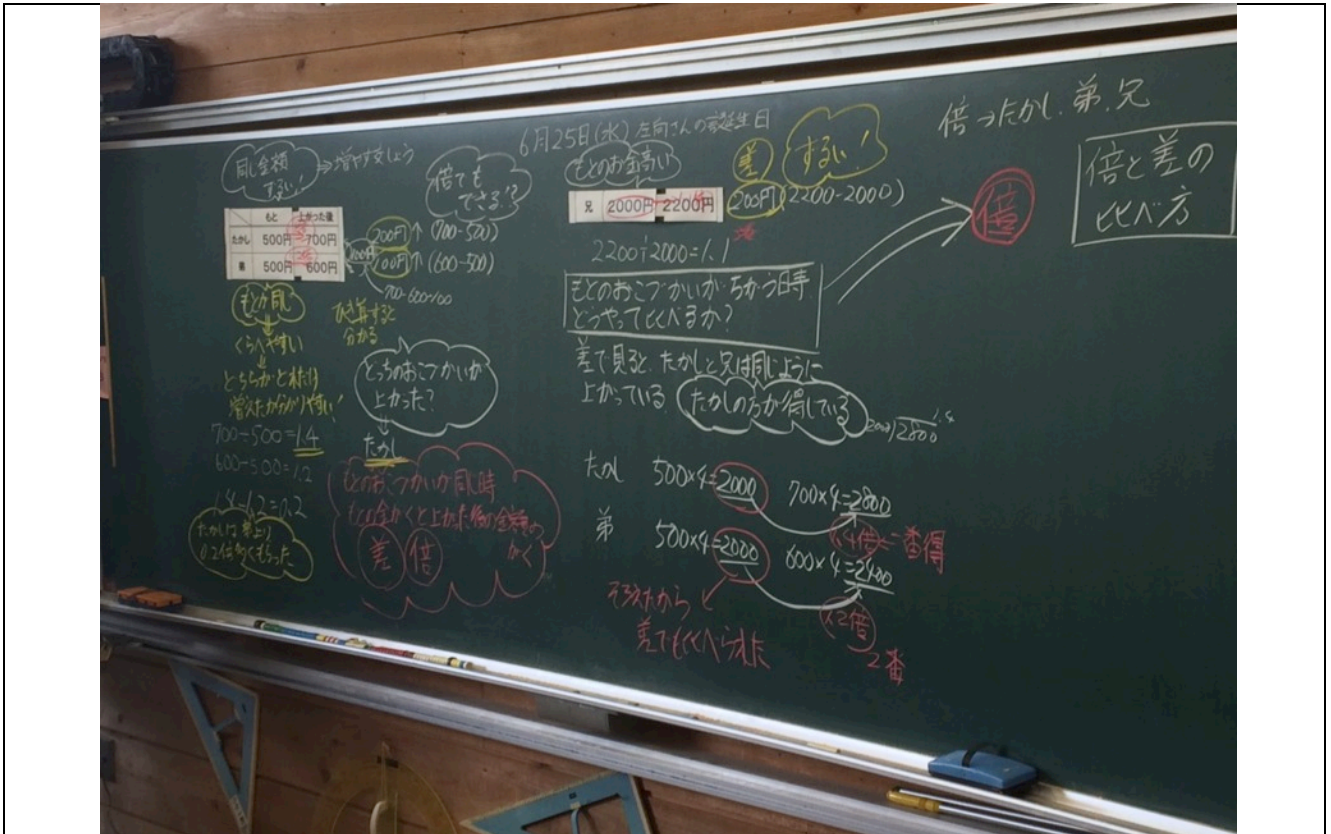 6月25日(水) 左向さんのお誕生日
同じ金額
ずるい!
→増やすましょう
倍でも
できる!?
もと 上がった後
たかし 500円 700円
弟 500円 600円
200円↑(700-500)
100円↑(600-500)
700-600=100
ひき算すると
分かる
もとが同じ
くらべやすい
どちらがどれだけ
増えたか分かりやすい!
700÷500=1.4
600÷500=1.2
1.4-1.2=0.2
たかしは弟より
0.2倍多くもらった
どっちのおこづかいが
上がった?
たかし
もとのおこづかいが同じ時
もとの金がくと上がった後の金額の
差 倍 がく
もとのお金高い
差
ずるい!
兄 2000円 2200円
200円(2200-2000)
2200÷2000=1.1
もとのおこづかいがちがう時
どうやって比べるか?
差で見ると、たかしと兄は同じように
上がっている
たかしの方が得している
たかし 500×4=2000 700×4=2800
1.4倍 一番得
弟 500×4=2000 600×4=2400
1.2倍
2番
そろえたから
差でもくらべられた
倍→たかし、弟、兄
倍
倍と差の
比べ方